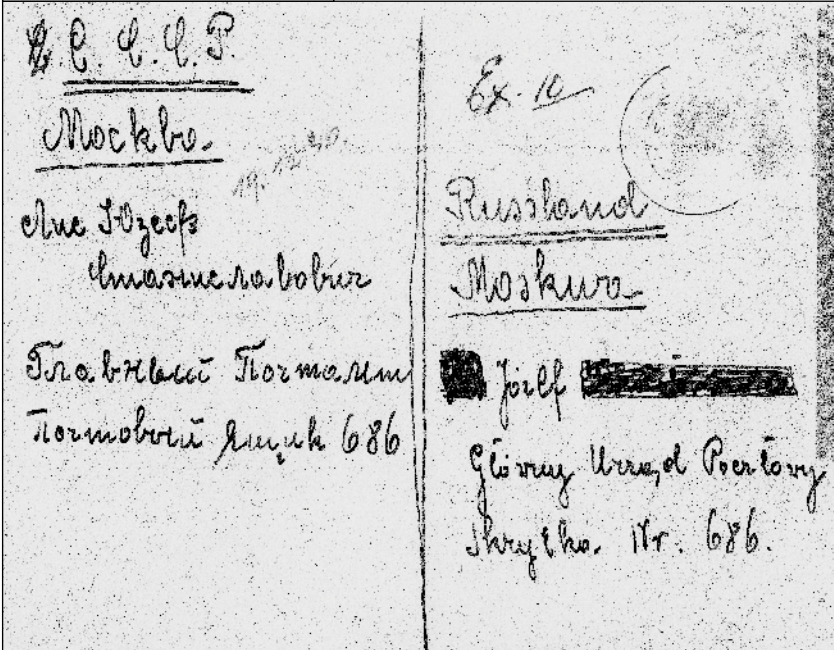 С. С. С. Р.
Москва
19. 12. 30.
Лис Юзеф
Станиславович
Главный Почтамт
Почтовый Ящик 686
Ex. 10
Russland
Moskwa
Józef
Główny Urząd Pocztowy
Skrytka. Nr. 686.